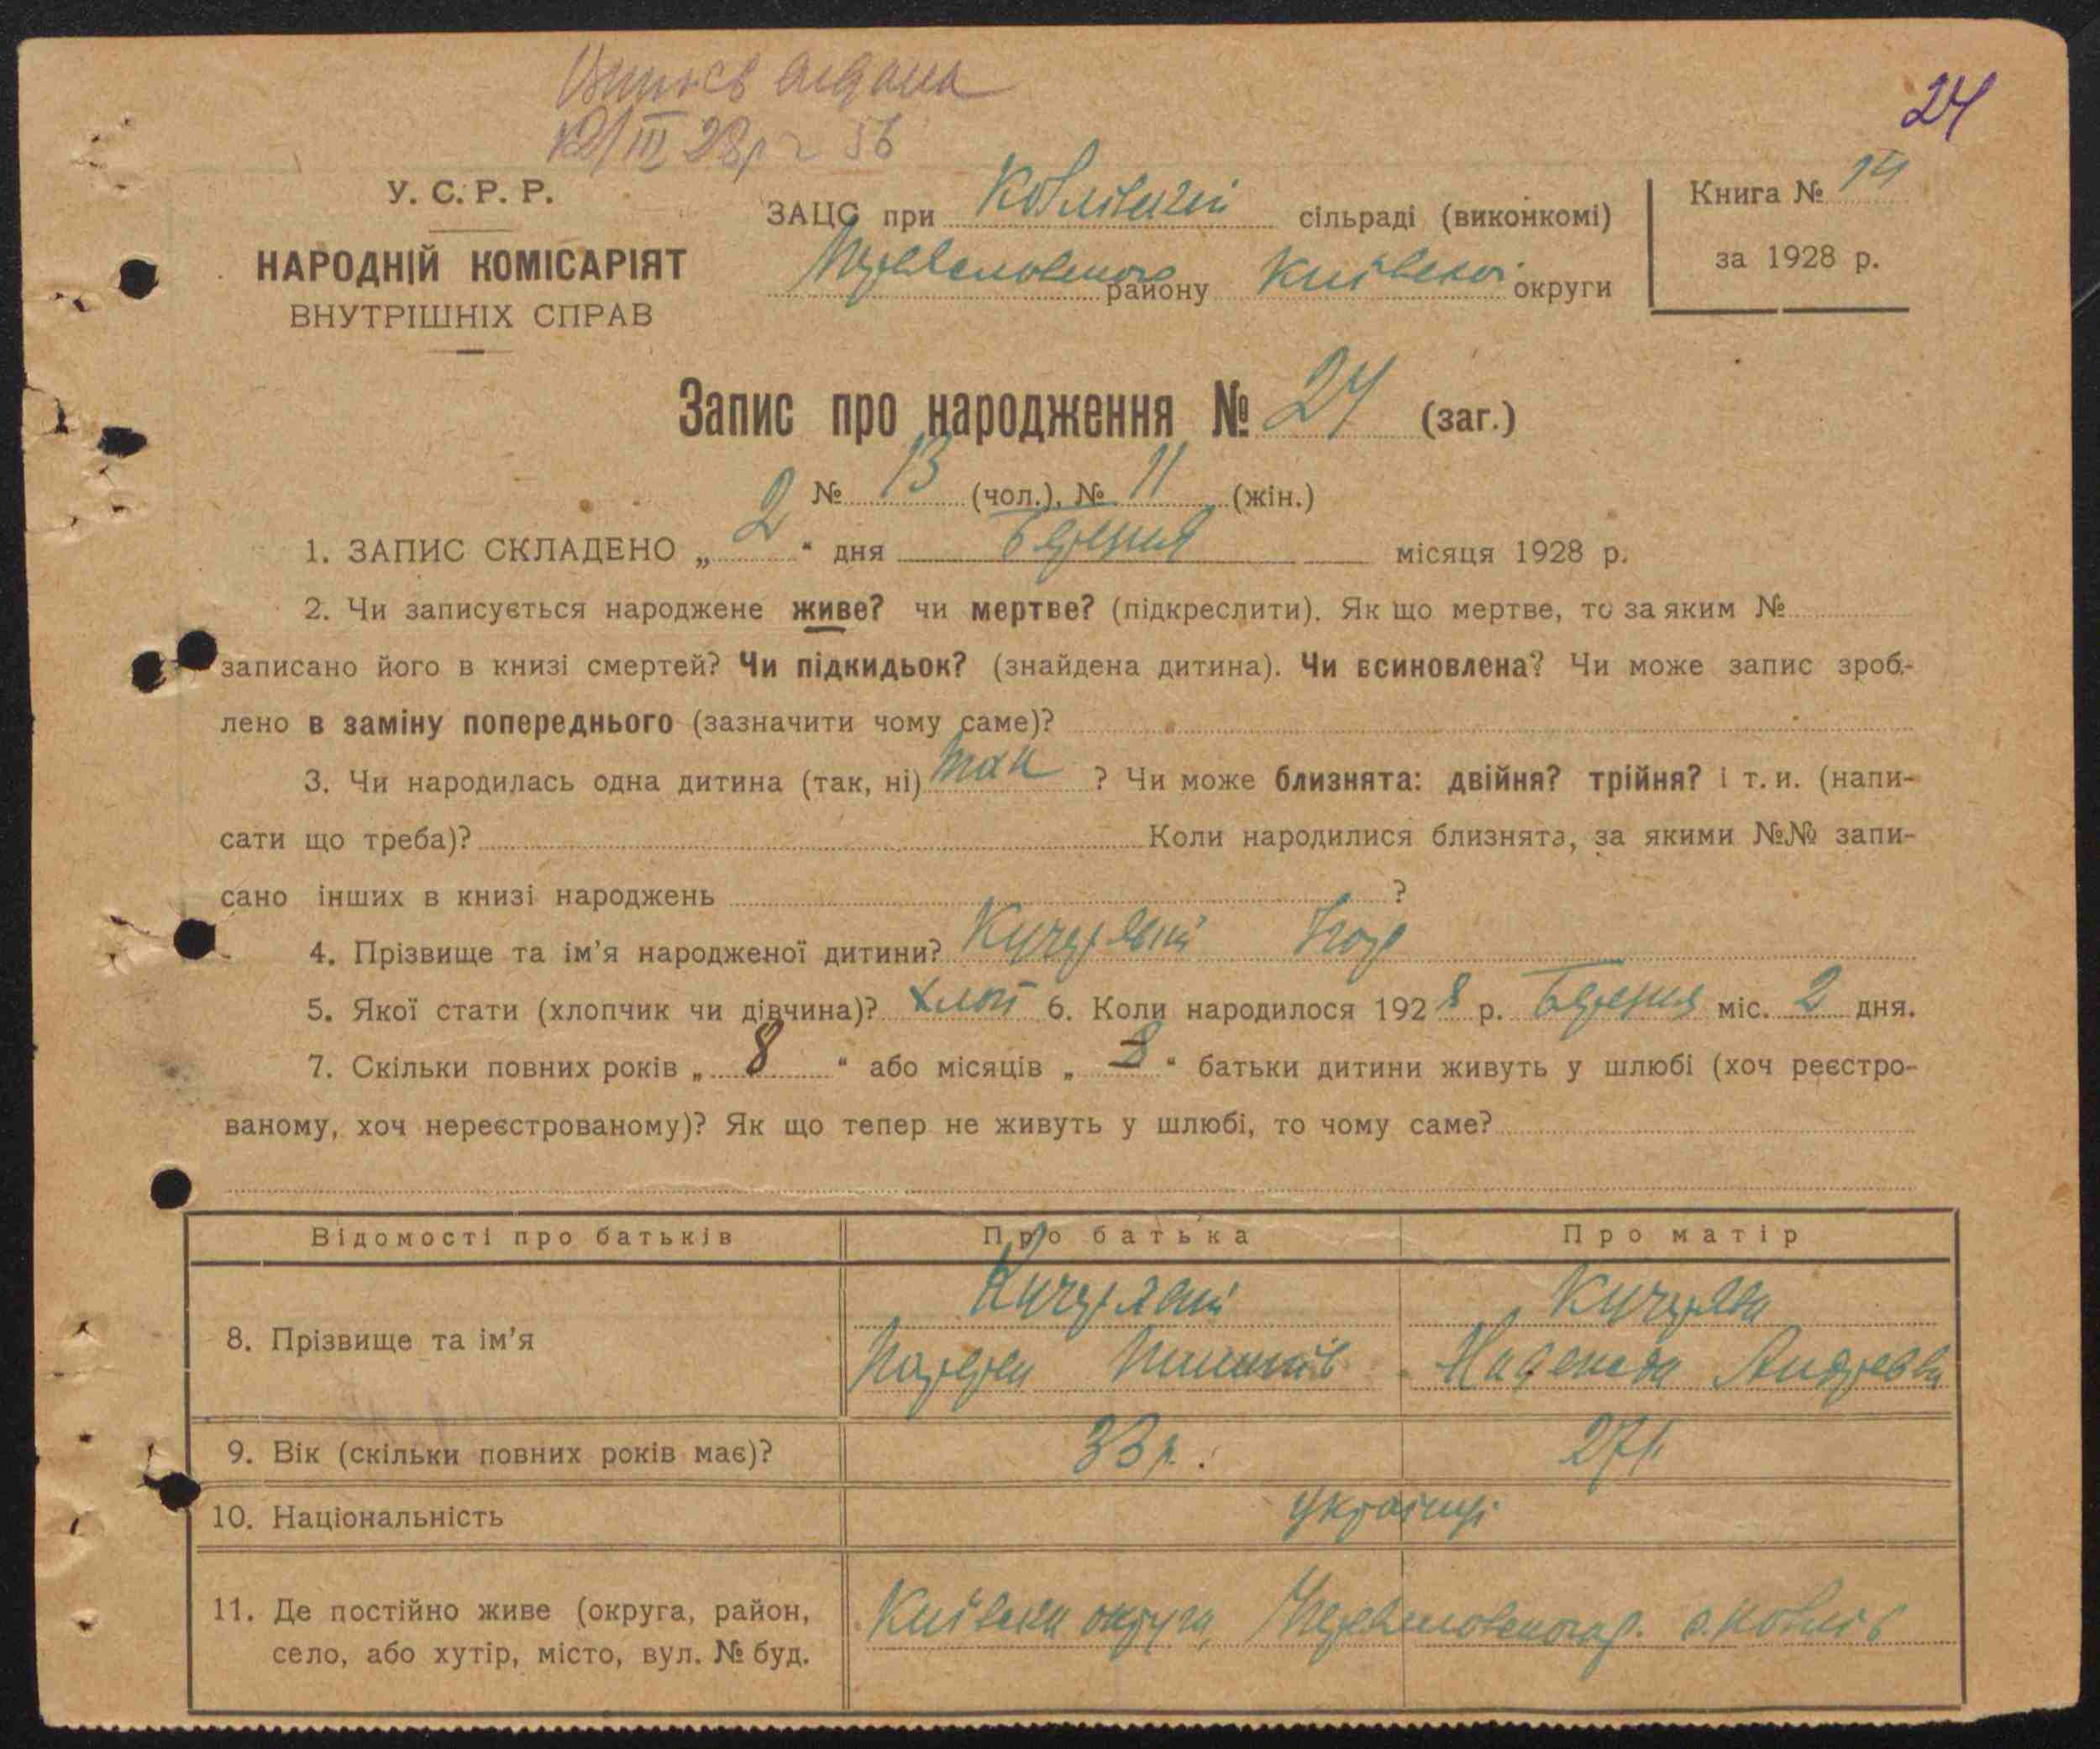 24
У. С. Р. Р.
НАРОДНІЙ КОМІСАРІЯТ
ВНУТРІШНІХ СПРАВ
ЗАЦС при Ковлівській сільраді (виконкомі)
району Київської округи
Книга № 14
за 1928 р.
Запис про народження № 24 (заг.)
№ 13 (чол.), № 11 (жін.)
1. ЗАПИС СКЛАДЕНО „ 2 “ дня Березня місяця 1928 р.
2. Чи записується народжене живе? чи мертве? (підкреслити). Як що мертве, то за яким №
записано його в книзі смертей? Чи підкидьок? (знайдена дитина). Чи всиновлена? Чи може запис зроб-
лено в заміну попереднього (зазначити чому саме)?
3. Чи народилась одна дитина (так, ні) так ? Чи може близнята: двійня? трійня? і т. и. (напи-
сати що треба)? Коли народилися близнята, за якими №№ запи-
сано інших в книзі народжень ?
4. Прізвище та ім’я народженої дитини? Кучерявий
5. Якої стати (хлопчик чи дівчина)? хлоп 6. Коли народилося 1928 р. Березня міс. 2 дня.
7. Скільки повних років „ 8 “ або місяців „ “ батьки дитини живуть у шлюбі (хоч реєстро-
ваному, хоч нереєстрованому)? Як що тепер не живуть у шлюбі, то чому саме?
Відомості про батьків Про батька Про матір
8. Прізвище та ім’я
Кучерявий Кучерява
Надежда Андреевна
9. Вік (скільки повних років має)? 33 р. 27 р.
10. Національність Українці
11. Де постійно живе (округа, район,
село, або хутір, місто, вул. № буд.
Київська округа, с. Ковлів